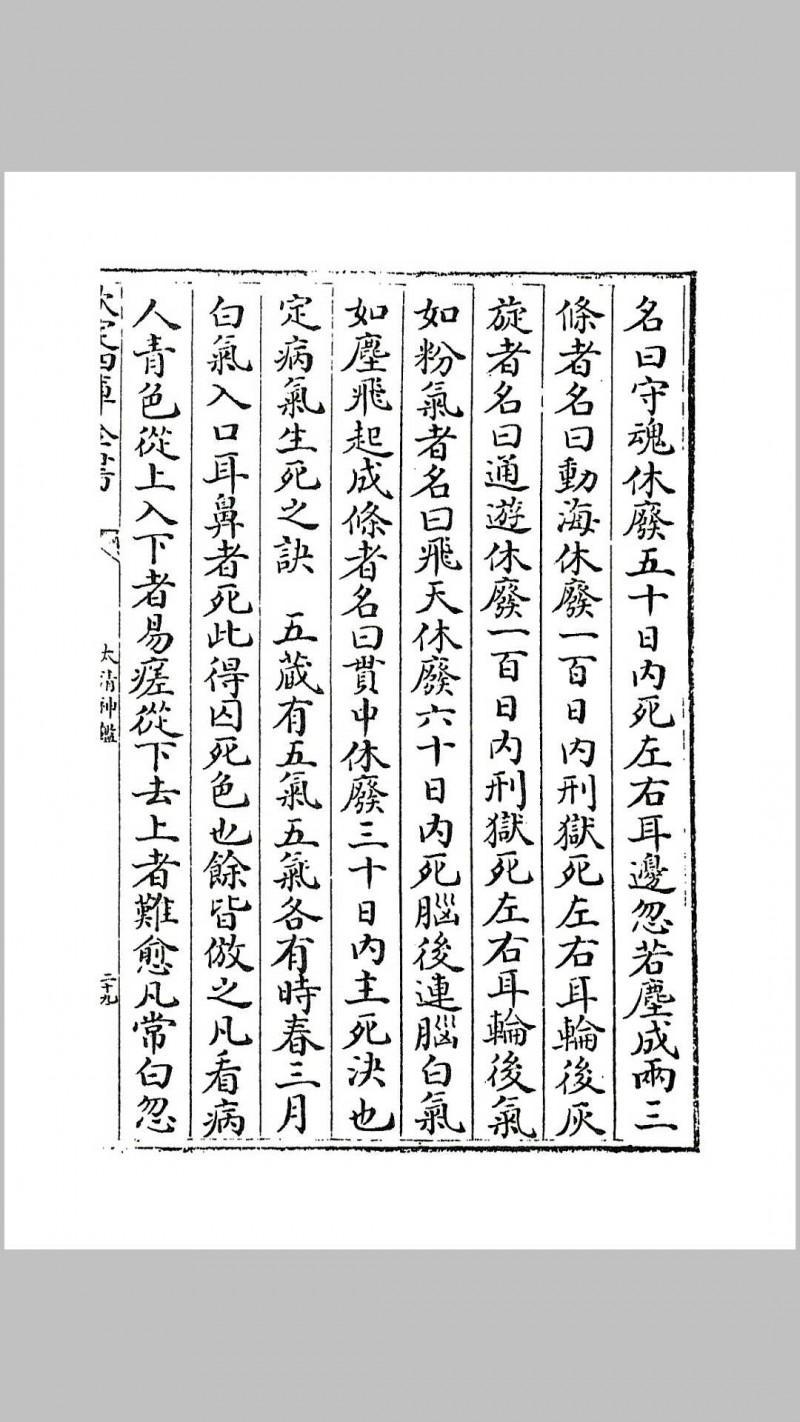 名曰守魂休廢五十日内死左右耳邊忽若塵成兩三
條者名曰動海休廢一百日内刑獄死左右耳輪後灰
旋者名曰通遊休廢一百日内刑獄死左右耳輪後氣
如粉氣者名曰飛天休廢六十日内死腦後連腦白氣
如塵飛起成條者名曰貫中休廢三十日内主死決也
定病氣生死之訣　五藏有五氣五氣各有時春三月
白氣入口耳鼻者死此得囚死色也餘皆倣之凡看病
人青色從上入下者易瘥從下去上者難愈凡常白忽
欽定四庫全書
太清神鑑
二十九